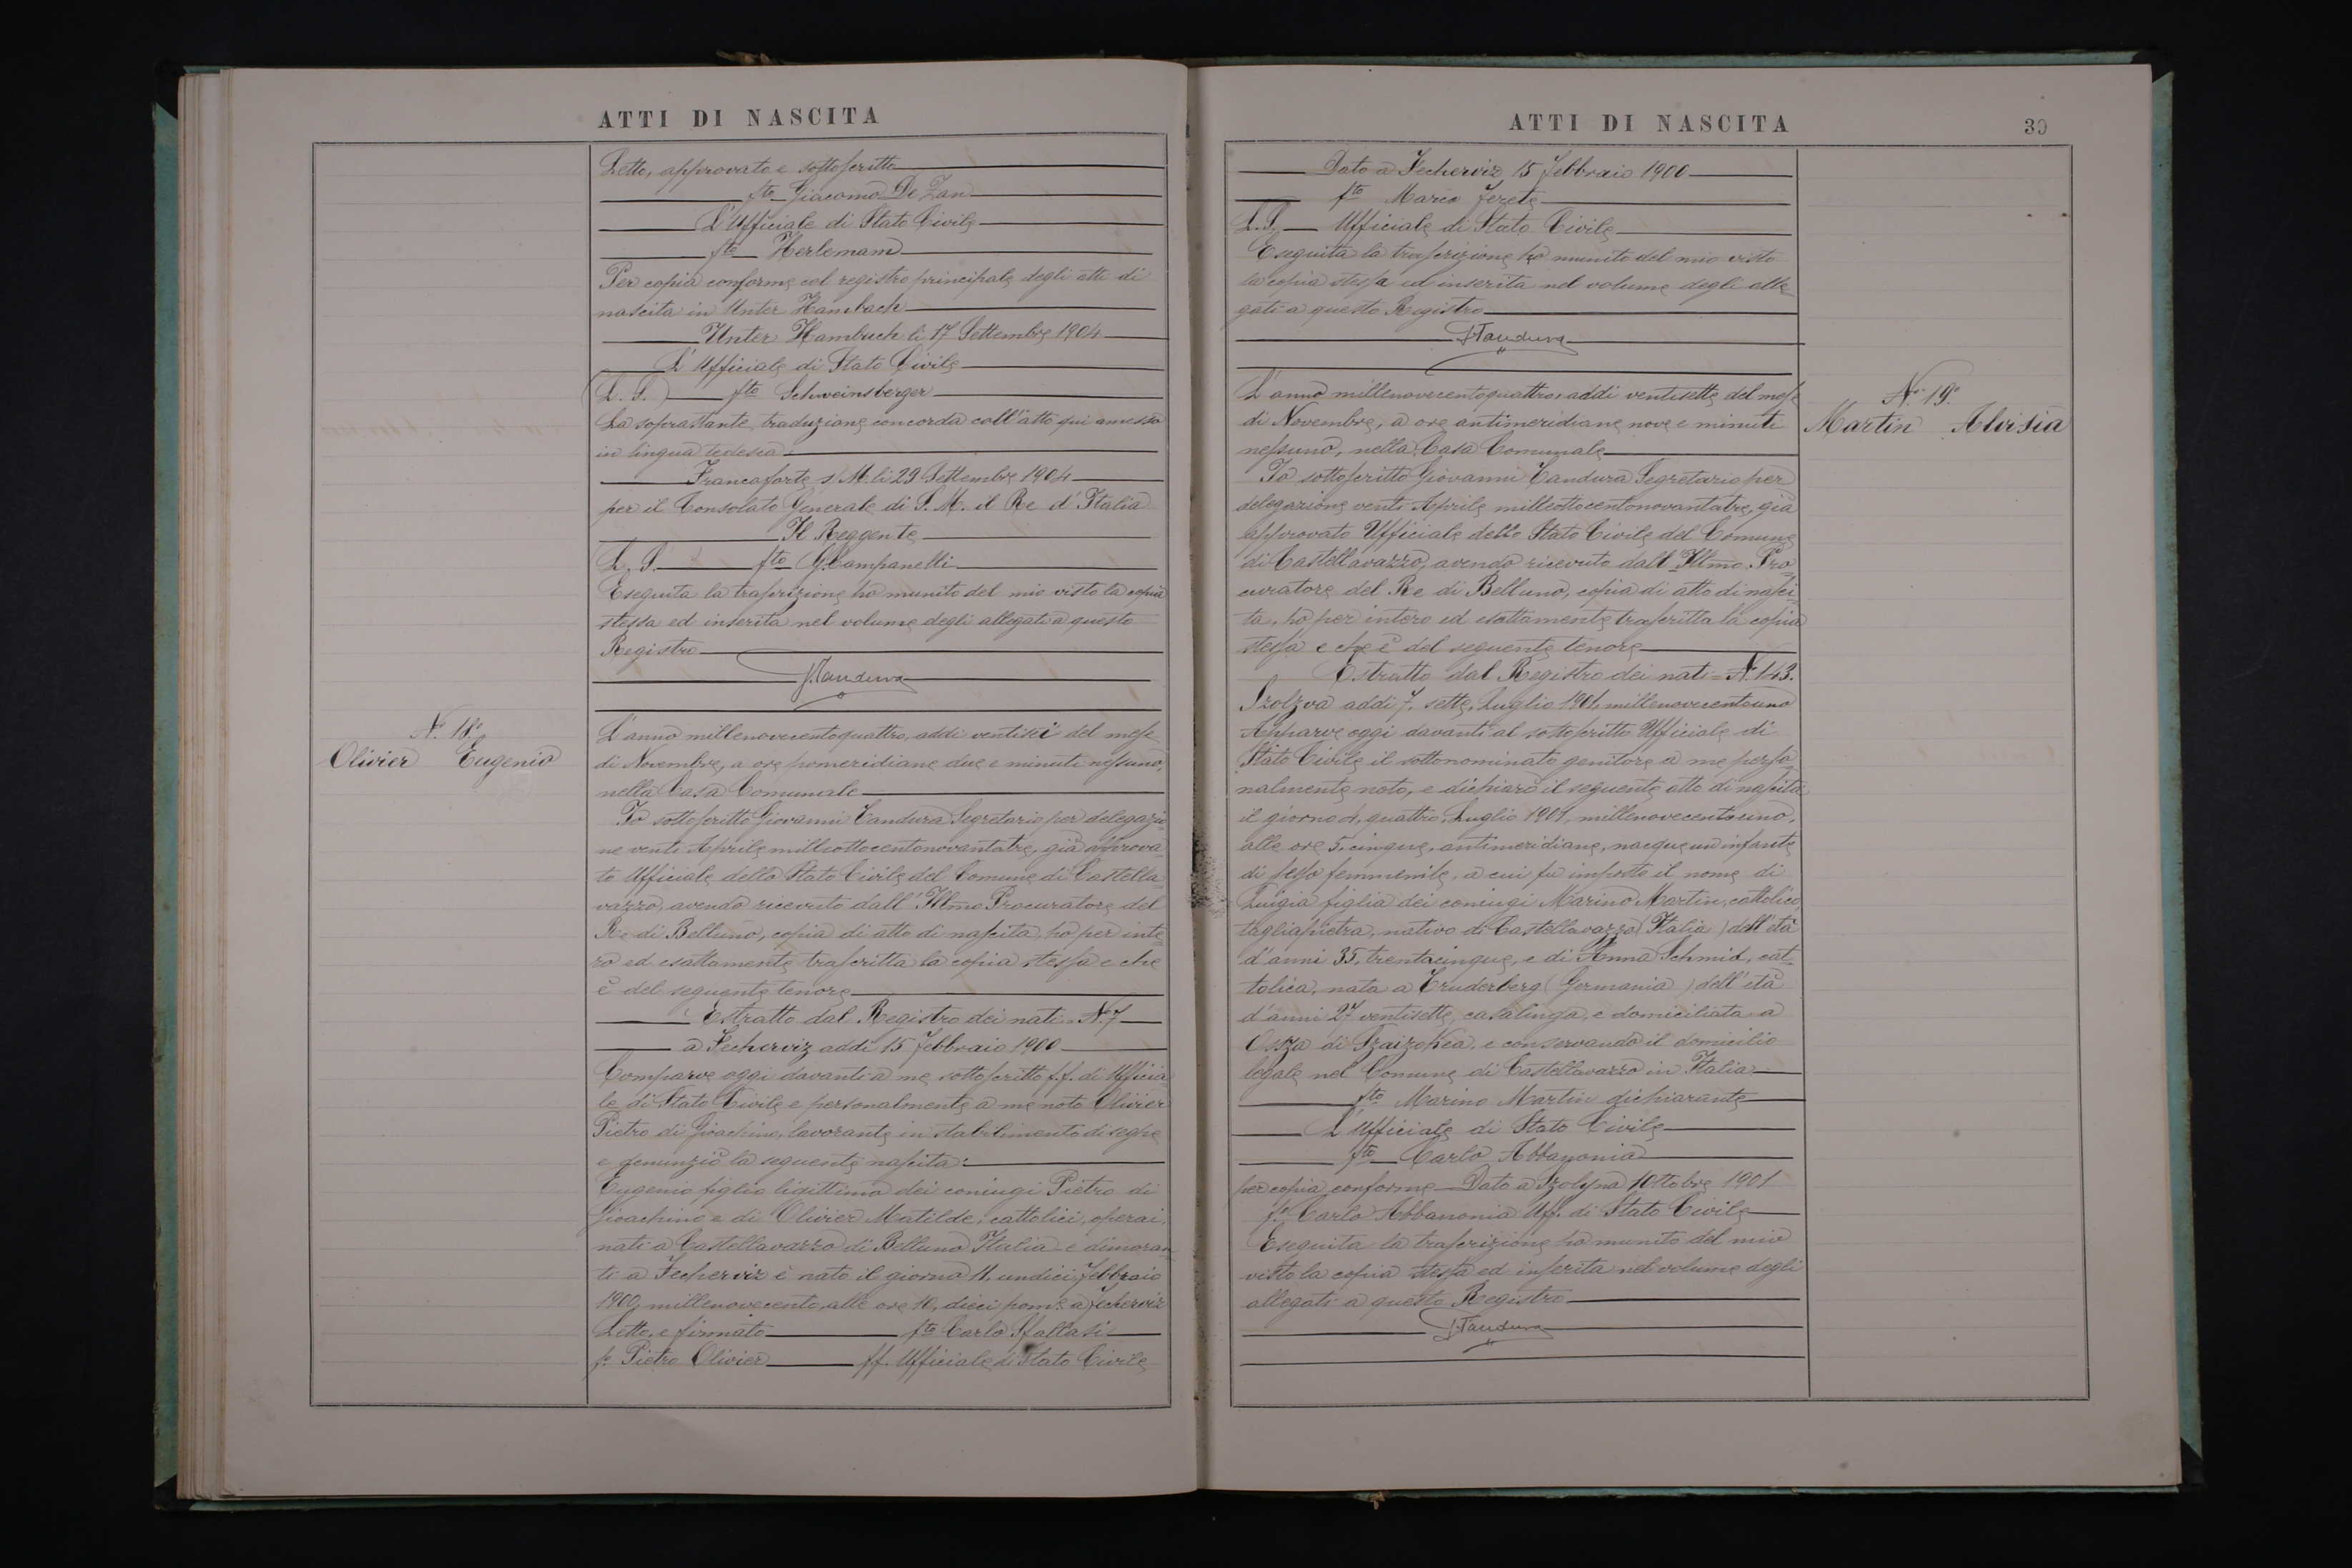 ATTI DI NASCITA
Letto, approvato e sottoscritto
fto Giacomo De Zan
L'Ufficiale di Stato Civile
fto Herlemann
Per copia conforme col registro principale degli atti di
nascita in Unter Hambach
Unter Hambuch li 17 Settembre 1904
L'Ufficiale di Stato Civile
(L. S.) fto Schweinsberger
La soprastante traduzione concorda coll'atto qui annesso
in lingua tedesca.
Francoforte s/M. li 29 Settembre 1904
per il Consolato Generale di S. M. il Re d'Italia
Il Reggente
L. S. fto G. Campanelli
Eseguita la trascrizione ho munito del mio visto la copia
stessa ed inserita nel volume degli allegati a questo
Registro
GTandura
N. 18.
Olivier Eugenio
L'anno millenovecentoquattro, addi ventisei del mese
di Novembre, a ore pomeridiane due e minuti nessuno,
nella Casa Comunale
Io sottoscritto Giovanni Tandura Segretario per delegazio=
ne venti Aprile milleottocentonovantatre, già approva=
to Ufficiale dello Stato Civile del Comune di Castella=
vazzo, avendo ricevuto dall'Illmo Procuratore del
Re di Belluno, copia di atto di nascita, ho per inte=
ro ed esattamente trascritta la copia stessa e che
è del seguente tenore
Estratto dal Registro dei nati N. 7
a Fecherviz addi 15 Febbraio 1900
Comparve oggi davanti a me sottoscritto f.f. di Ufficia
le di Stato Civile e personalmente a me noto Olivier
Pietro di Gioachino, lavorante in stabilimento di seghe
e denunziò la seguente nascita:
Eugenio figlio ligittimo dei coniugi Pietro di
Gioachino e di Olivier Matilde, cattolici, operai,
nati a Castellavazzo di Belluno Italia e dimoran
ti a Fecherviz è nato il giorno 11, undici, Febbraio
1900, millenovecento alle ore 10, dieci pom.e a Fecherviz
Letto e firmato fto Carlo Sfallasi
fo Pietro Olivier ff. Ufficiale di Stato Civile
ATTI DI NASCITA
39
Dato a Fecherviz 15 Febbraio 1900
fto Mario Ferete
L. S. Ufficiale di Stato Civile
Eseguita la trascrizione ho munito del mio visto
la copia stessa ed inserita nel volume degli alle
gati a questo Registro
GTandura
N. 19.
Martin Aloisia
L'anno millenovecentoquattro, addi ventisette del mese
di Novembre, a ore antimeridiane nove e minuti
nessuno, nella Casa Comunale
Io sottoscritto Giovanni Tandura Segretario per
delegazione venti Aprile milleottocentonovantatre, già
approvato Ufficiale dello Stato Civile del Comune
di Castellavazzo, avendo ricevuto dall'Illmo. Pro=
curatore del Re di Belluno, copia di atto di nasci=
ta, ho per intero ed esattamente trascritta la copia
stessa e che è del seguente tenore
Estratto dal Registro dei nati = N. 143.
Szolzva addi 7, sette, Luglio 1901, millenovecentouno
Apparve oggi davanti al sottoscritto Ufficiale di
Stato Civile il sottonominato genitore a me perso
nalmente noto, e dichiarò il seguente atto di nascita:
il giorno 4, quattro, Luglio 1901, millenovecentouno,
alle ore 5, cinque, antimeridiane, nacque un infante
di sesso femmenile, a cui fu imposto il nome di
Luigia figlia dei coniugi Marino Martin, cattolico,
tagliapietra, nativo di Castellavazzo (Italia) dell'età
d'anni 35, trentacinque, e di Anna Schmid, cat=
tolica, nata a Truderberg (Germania) dell'età
d'anni 27 ventisette, casalinga, e domiciliata a
Osiza di Szaizokea, e conservando il domicilio
legale nel Comune di Castellavazzo in Italia
fto Marino Martin dichiarante
L'Ufficiale di Stato Civile
fto Carlo Abbanonia
per copia conforme Dato a Szolyva 10 Ttobre 1901
fo Carlo Abbanonia Uff. di Stato Civile
Eseguita la trascrizione ho munito del mio
visto la copia stessa ed inserita nel volume degli
allegati a questo Registro
GTandura